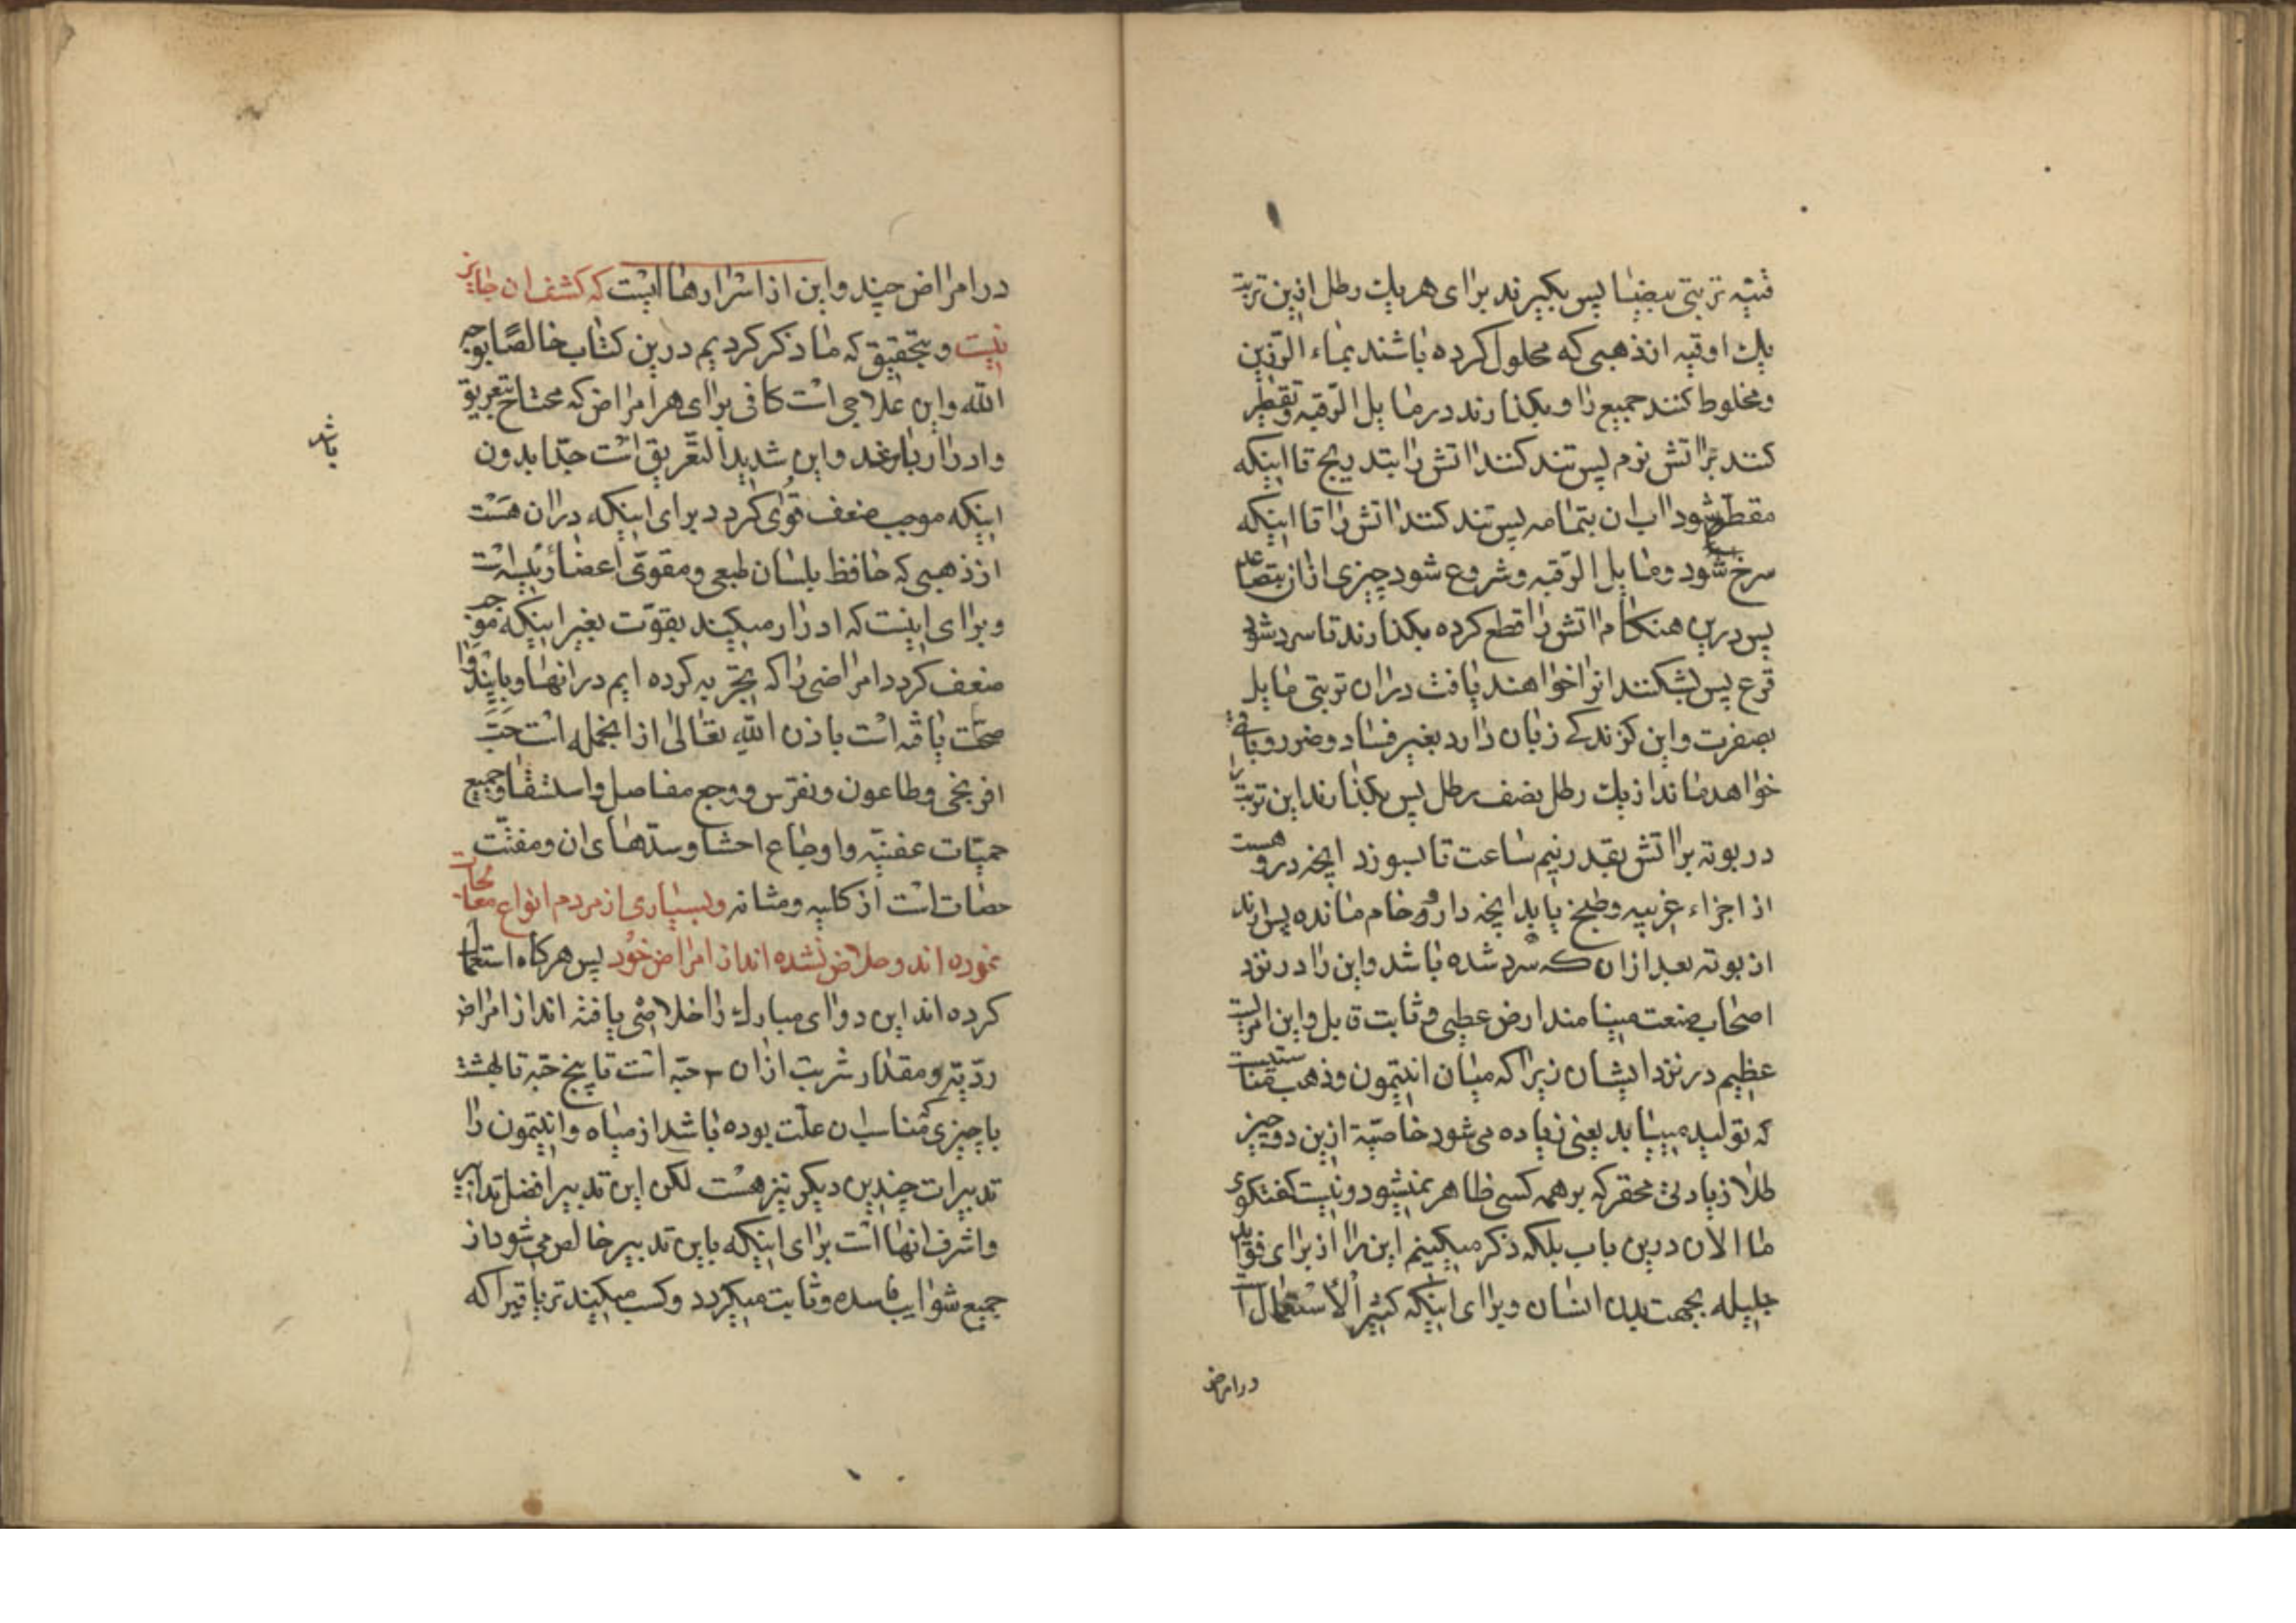 تربتی بیضا پس بکیرند برای هر یك رطل ازین تربة
یك اوقیه از ذهبی که محلول کرده باشند بماء الرزین
ومخلوط کنند جمیع را وبکذارند در مایل الرقبه وتقطیر
کنند بر اتش نرم پس تند کنند اتش را بتدریج تا اینکه
مقطر شود اب ان بتمامه پس تند کنند اتش را تا اینکه
سرخ شود ومایل الرقبه وشروع شود چیزی ازان بتصاعد
پس درین هنکام اتش را قطع کرده بکذارند تا سرد شود
قرع پس بشکنند انرا خواهند یافت دران تربتی مایل
بصفرت واین کزندکی زبان دارد بغیر فساد وضرر وباقی
خواهد ماند از یك رطل نصف رطل پس بکذارند این تربت را
در بوته بر اتش بقدر نیم ساعت تا بسوزد انچه درو هست
از اجزاء غریبه وطبخ یابد انچه دارو خام مانده پس ارند
از بوته بعد ازان که سرد شده باشد واین را در نزد
اصحاب صنعت مینامند ارض عطبی وثابت قابل واین امریست
عظیم در نزد ایشان زیرا که میان انتیمون وذهب مناسبتیست
که تولید مییابد یعنی زیاده می شود خاصیة ازین دو چیز
طلا زیادتی محقر که بر همه کسی ظاهر نمیشود ونیست کفتکوی
ما الان درین باب بلکه ذکر میکینم این را از برای فواید
جلیله بجهت بدن انسان وبرای اینکه کثیر الاستعمال است
در امراض
در امراض چند واین از اسرارهاایست که کشف ان جایز
نیست وبتحقیق که ما ذکر کردیم درین کتاب خالصا لوجه
الله واین علاجی است کافی برای هر امراض که محتاج بتعریق
وادرار باشد واین شدید التعریق است جدا بدون
باشد
اینکه موجب ضعف قوی کردد برای اینکه دران هست
از ذهبی که حافظ بلسان طبعی ومقوی اعضاء رئیسه است
وبرای اینست که ادرار میکیند بقوت بغیر اینکه موجب
ضعف کردد امراضی را که تجربه کرده ایم در انها ویابنده انرا
صحت یافه است باذن الله تعالی از انجمله است حب
افرنجی وطاعون ونقرس ووجع مفاصل واستسقا وجمیع
حمیات عفنیه واوجاع احشا وسدهای ان ومفتت
حصات است از کلیه ومثانه وبسیاری از مردم انواع معالجات
نموده اند وخلاص نشده اند از امراض خود پس هرکاه استعمال
کرده اند این دوای مبارك را خلاصی یافته اند از امراض
ردیه ومقدار شربت ازان ۲ حبه است تا پنج حبه تا بهشت
با چیزی مناسب ان علت بوده باشد از میاه وانتیمون را
تدبیرات چندین دیکر نیز هست لکن این تدبیر افضل تدابیر
واشرف انها است برای اینکه باین تدبیر خالص می شود از
جمیع شوایب فاسده وثابت میکردد وکسب میکیند تریاقیرا که